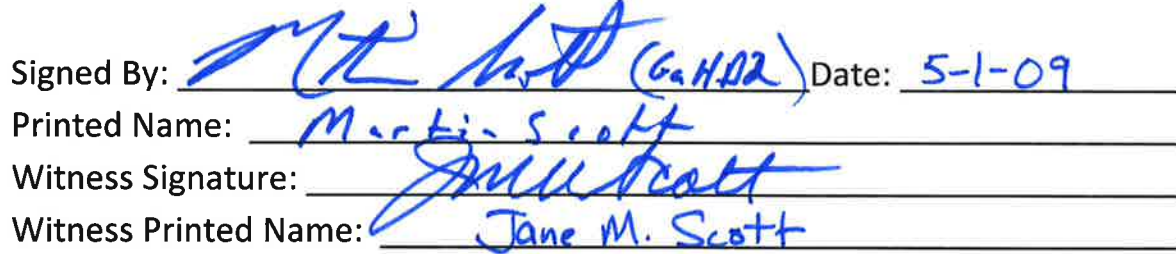 Signed By: Martin Scott (GaHD2) Date: 5-1-09
Printed Name: Martin Scott
Witness Signature: JM Scott
Witness Printed Name: Jane M. Scott